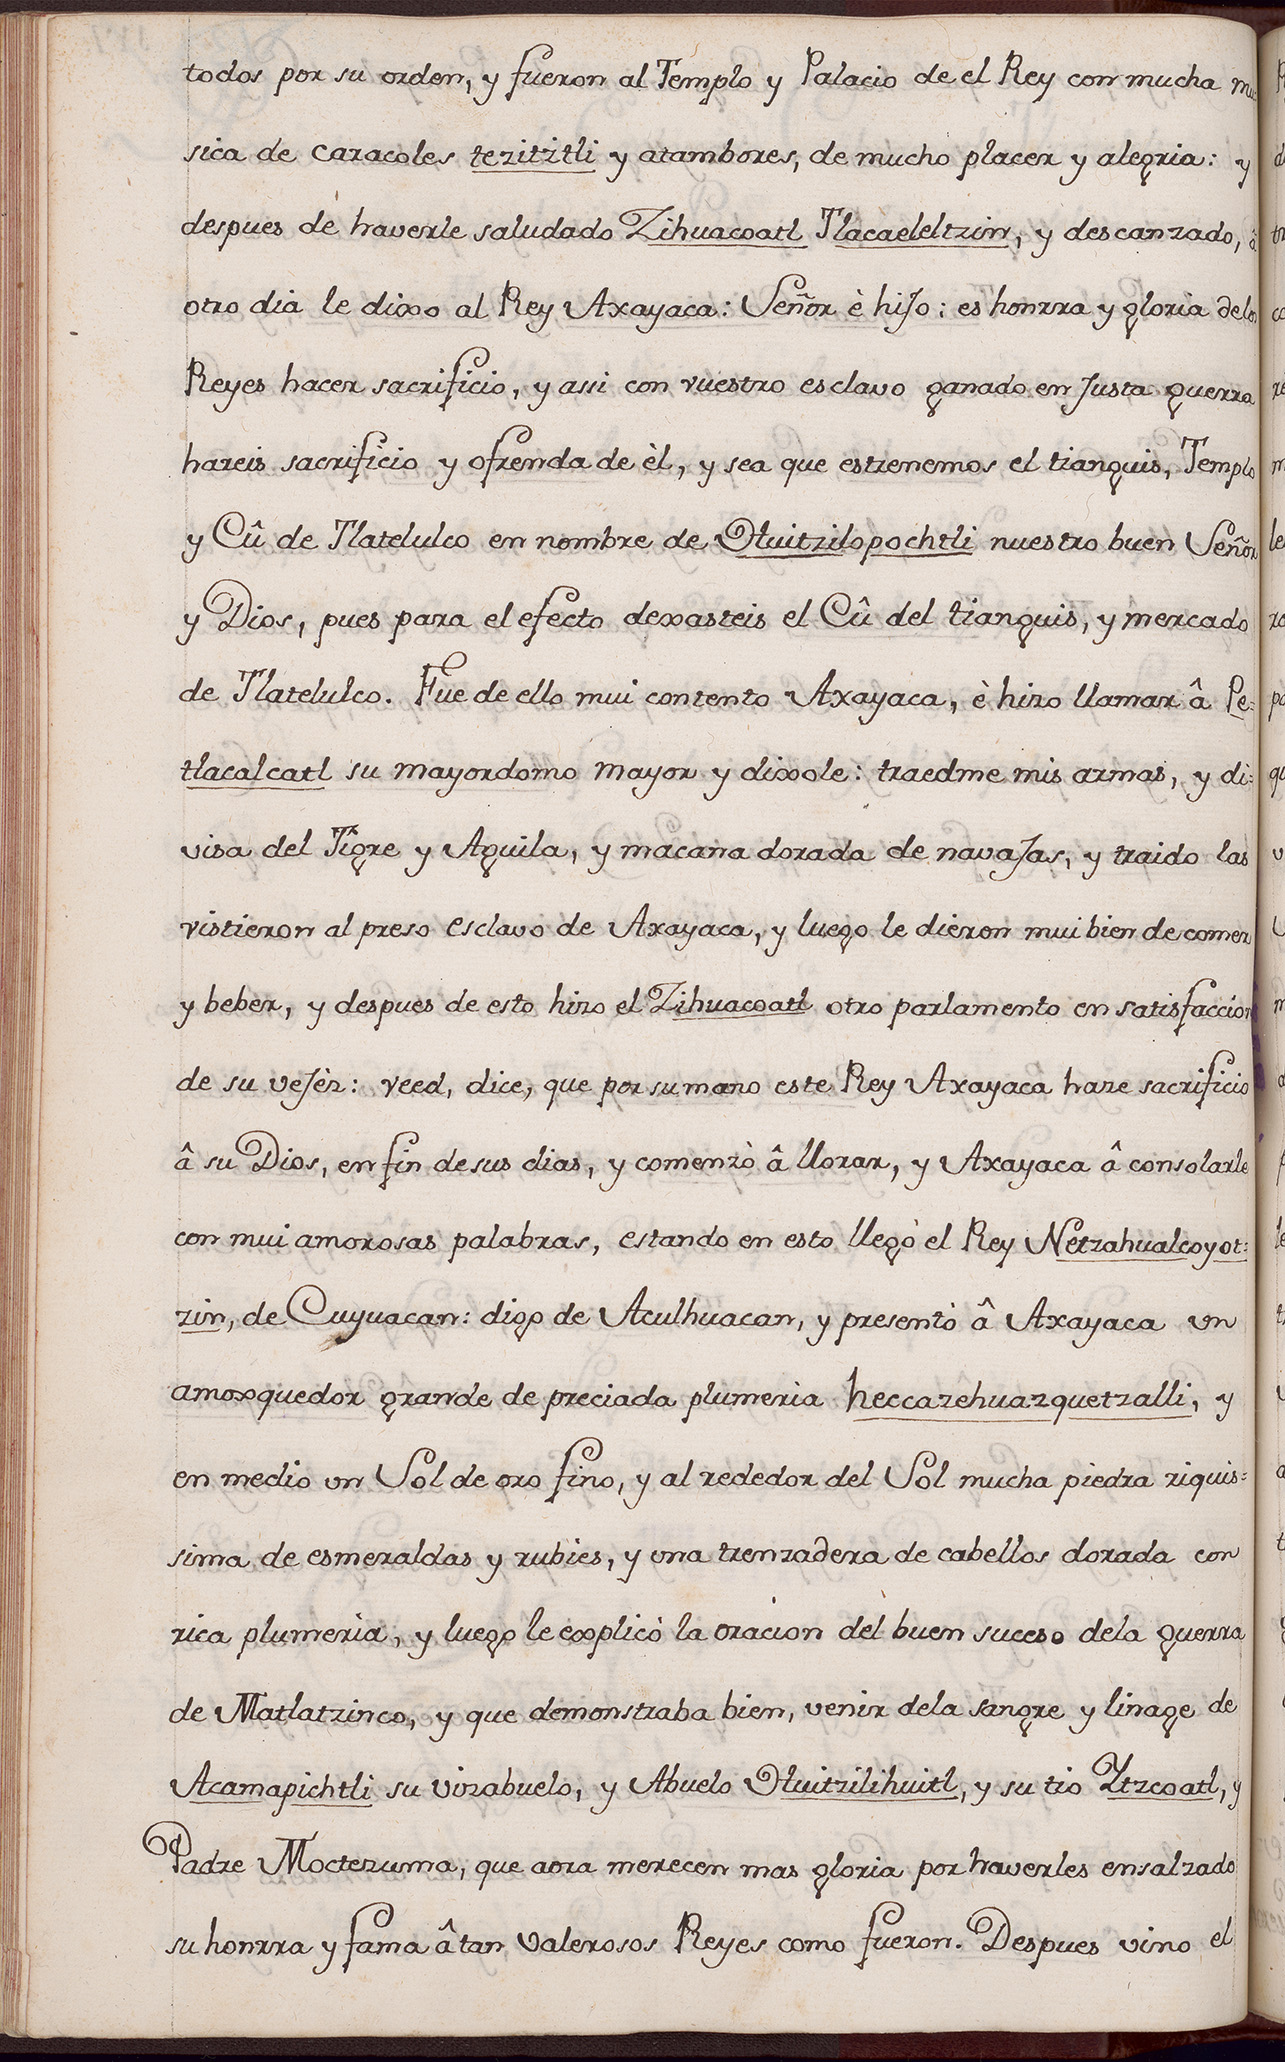 todos por su orden, y fueron al Templo y Palacio de el Rey con mucha mu
sica de caracoles tezitztli y atambores, de mucho placer y alegria: y
despues de haverle saludado Zihuacoatl Tlacaeleltzin, y descanzado, â
otro dia le dixo al Rey Axayaca: Señor è hiJo: es honrra y gloria delos
Reyes hacer sacrificio, y assi con vuestro esclavo ganado en Justa guerra
hareis sacrificio y ofrenda de èl, y sea que estrenemos el tianguis, Templo
y Cû de Tlatelulco en nombre de Huitzilopochtli nuestro buen Señor
y Dios, pues para el efecto dexasteis el Cû del tianguis, y mercado
de Tlatelulco. Fue de ello mui contento Axayaca, è hizo llamar â Pe=
tlacalcatl su mayordomo mayor y dixole: traedme mis armas, y di=
visa del Tigre y Aguila, y macana dorada de navaJas, y traido las
vistieron al preso esclavo de Axayaca, y luego le dieron mui bien de comer
y beber, y despues de esto hizo el Zihuacoatl otro parlamento en satisfaccion
de su veJèz: veed, dice, que por su mano este Rey Axayaca haze sacrificio
â su Dios, en fin de sus dias, y comenzò â llorar, y Axayaca â consolarle
con mui amorosas palabras, estando en esto llegò el Rey Netzahualcoyot=
zin, de Cuyuacan: digo de Aculhuacan, y presentò â Axayaca un
amoxquedor grande de preciada plumeria heccazehuazquetzalli, y
en medio un Sol de oro fino, y al rededor del Sol mucha piedra riquis=
sima de esmeraldas y rubies, y una trenzadera de cabellos dorada con
rica plumeria, y luego le explicò la oracion del buen suceso dela guerra
de Matlatzinco, y que demonstraba bien, venir dela sangre y linage de
Acamapichtli su vizabuelo, y Abuelo Huitzilihuitl, y su tio Ytzcoatl, y
Padre Moctezuma, que aora merecen mas gloria por haverles ensalzado
su honrra y fama â tan valerosos Reyes como fueron. Despues vino el